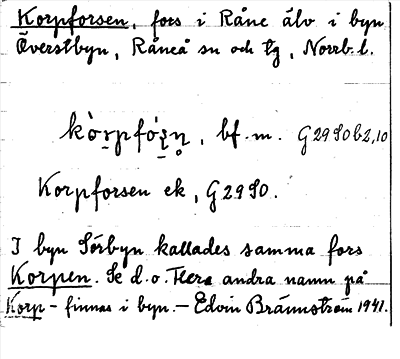 Korpforsen, fors i Råne älv i byn
Överstbyn, Råneå sn och tg, Norrb. l.
kòrpfórsn̥, bf. m. G2980b2,10
Korpforsen ek, G2980.
I byn Sörbyn kallades samma fors
Korpen. Se d. o. Flera andra namn på
Korp- finnas i byn. — Edvin Brännström 1941.